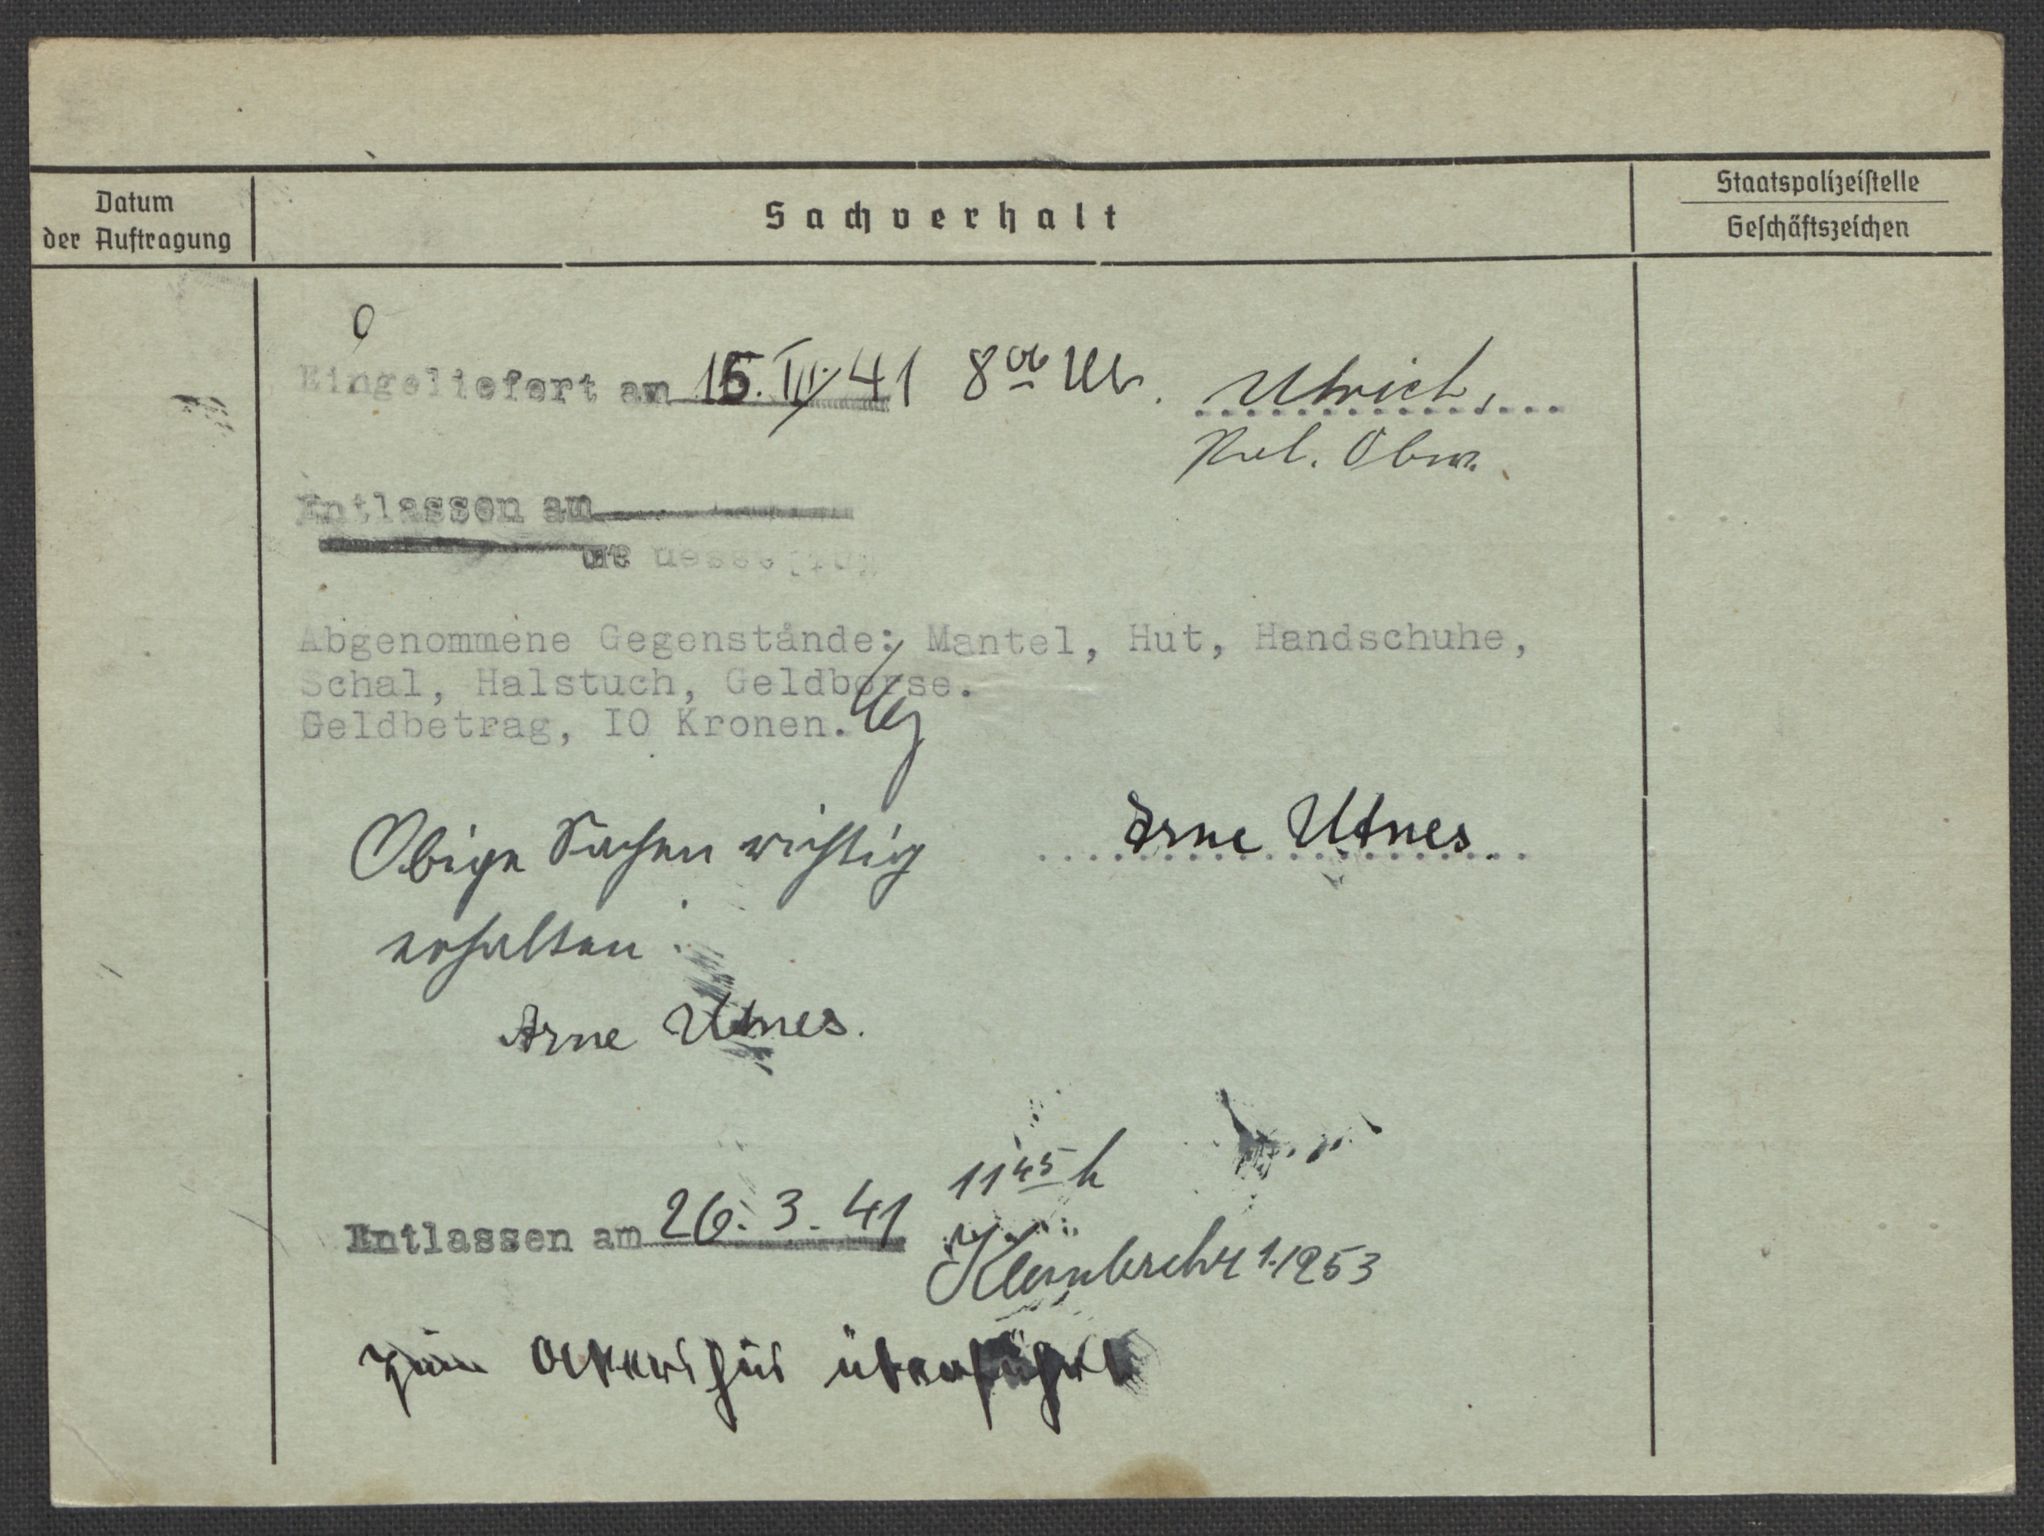 Datum
der Auftragung
Sachverhalt
Staatspolizeistelle
Geschäftszeichen
Eingeliefert am 15. III. 41 8 00 Uhr.
Ulrich,
Pol. Obw.
Entlassen am
Abgenommene Gegenstånde: Mantel, Hut, Handschuhe,
Schal, Halstuch, Geldbörse.
Geldbetrag, IO Kronen.
Arne Utnes
Obige Sachen richtig
erhalten:
Arne Utnes.
11 45 h
Entlassen am 26. 3. 41
1.1253
zum Akershus überführt